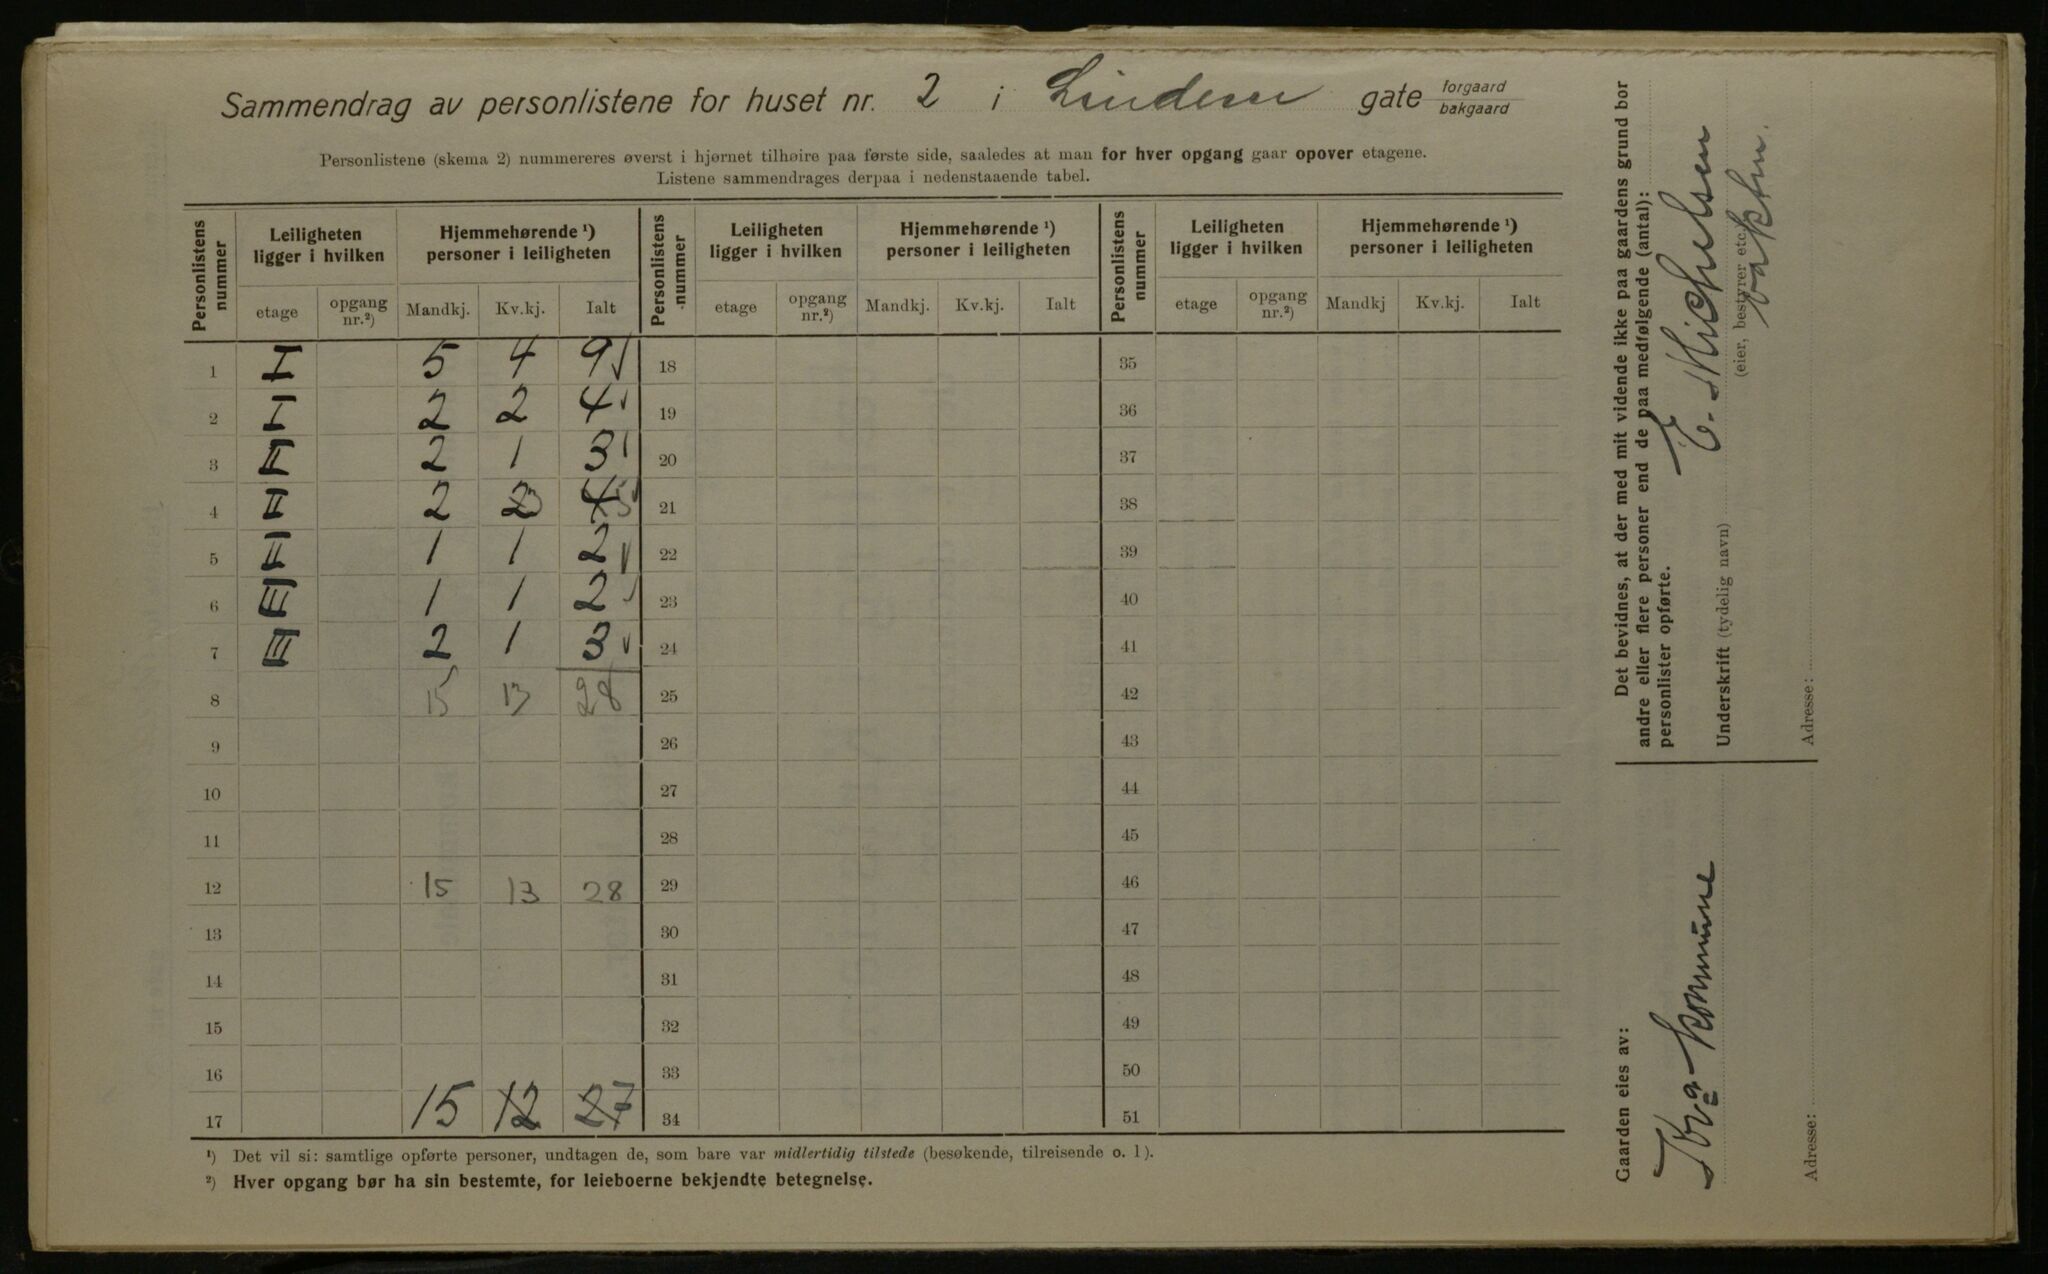 Sammendrag av personlistene for huset nr. 2 i Lindern gate forgaard bakgaard
Personlistene (skema 2) nummereres øverst i hjørnet tilhøire paa første side, saaledes at man for hver opgang gaar opover etagene.
Listene sammendrages derpaa i nedenstaaende tabel.
Personlistens nummer Leiligheten ligger i hvilken Hjemmehørende ¹) personer i leiligheten Personlistens nummer Leiligheten ligger i hvilken Hjemmehørende ¹) personer i leiligheten Personlistens nummer Leiligheten ligger i hvilken Hjemmehørende ¹) personer i leiligheten
etage opgang nr.²) Mandkj. Kv.kj. Ialt etage opgang nr.²) Mandkj. Kv.kj. Ialt etage opgang nr.²) Mandkj Kv.kj. Ialt
1 I 5 4 9 18 35
2 I 2 2 4 19 36
3 II 2 1 3 20 37
4 II 2 2 3 4 5 21 38
5 II 1 1 2 22 39
6 III 1 1 2 23 40
7 III 2 1 3 24 41
8 15 13 28 25 42
9 26 43
10 27 44
11 28 45
12 15 13 28 29 46
13 30 47
14 31 48
15 32 49
16 33 50
17 15 12 27 34 51
¹) Det vil si: samtlige opførte personer, undtagen de, som bare var midlertidig tilstede (besøkende, tilreisende o. l).
²) Hver opgang bør ha sin bestemte, for leieboerne bekjendte betegnelse.
Det bevidnes, at der med mit vidende ikke paa gaardens grund bor
andre eller flere personer end de paa medfølgende (antal):
personlister opførte.
E. Michelsen
Underskrift (tydelig navn)
(eier, bestyrer etc.)
vaktm.
Adresse:
Gaarden eies av:
Kra kommune
Adresse: